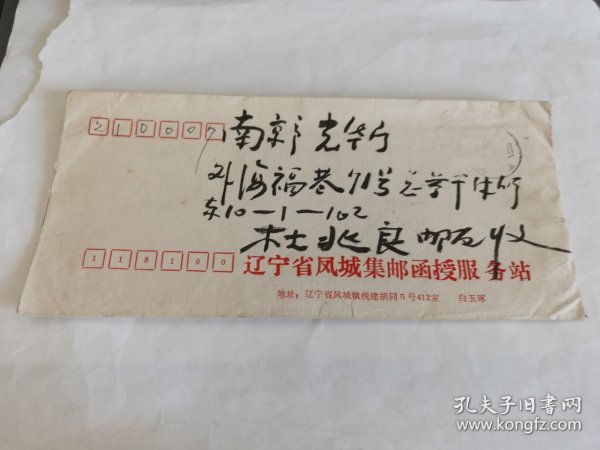 210007
南京光华门
外海福巷71号总字干休所
东10-1-102
杜兆良邮友收
118100
辽宁省凤城集邮函授服务站
地址：辽宁省凤城镇统建胡同5号412室 白玉琢
孔夫子旧书网
www.kongfz.com